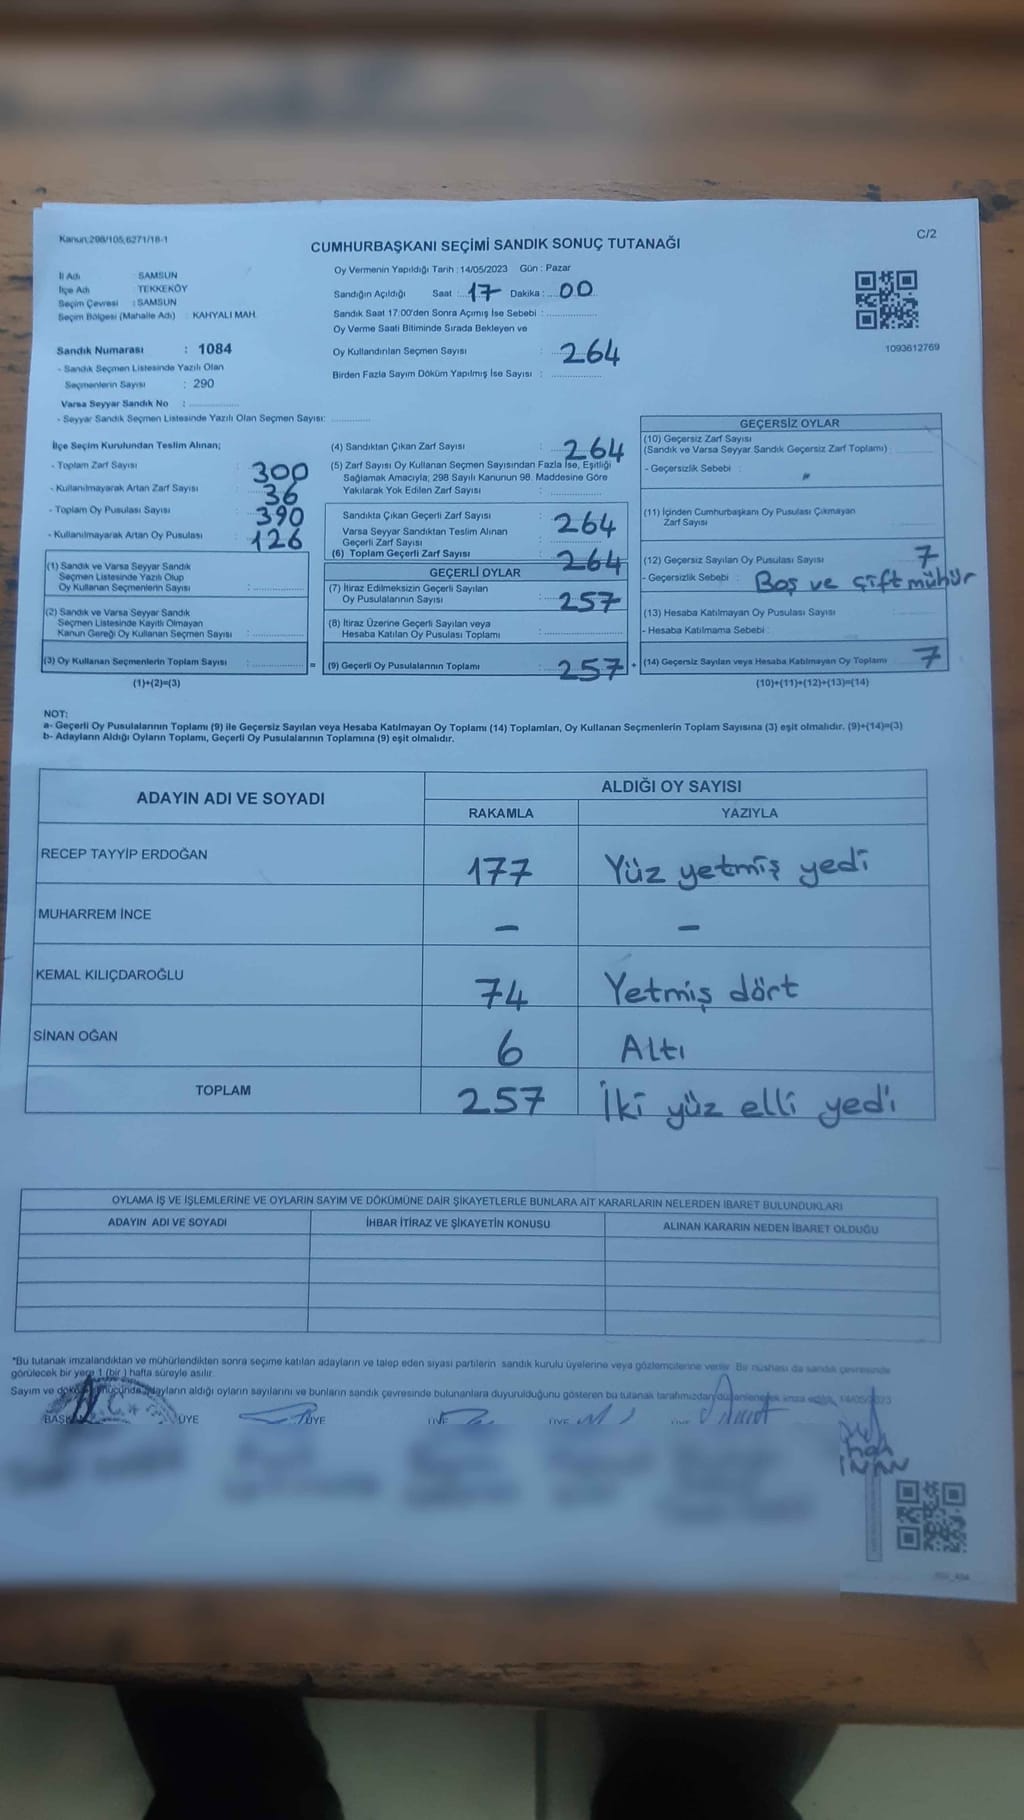 Kanun:298/105,6271/18-1
C/2
CUMHURBAŞKANI SEÇİMİ SANDIK SONUÇ TUTANAĞI
İl Adı : SAMSUN
İlçe Adı : TEKKEKÖY
Seçim Çevresi : SAMSUN
Seçim Bölgesi (Mahalle Adı) : KAHYALI MAH.
Sandık Numarası : 1084
- Sandık Seçmen Listesinde Yazılı Olan
Seçmenlerin Sayısı : 290
Varsa Seyyar Sandık No :
- Seyyar Sandık Seçmen Listesinde Yazılı Olan Seçmen Sayısı:
Oy Vermenin Yapıldığı Tarih : 14/05/2023 Gün : Pazar
Sandığın Açıldığı Saat : 17 Dakika : 00
Sandık Saat 17:00'den Sonra Açımış İse Sebebi :
Oy Verme Saati Bitiminde Sırada Bekleyen ve
Oy Kullandırılan Seçmen Sayısı : 264
Birden Fazla Sayım Döküm Yapılmış İse Sayısı :
1093612769
İlçe Seçim Kurulundan Teslim Alınan;
- Toplam Zarf Sayısı : 300
- Kullanılmayarak Artan Zarf Sayısı : 36
- Toplam Oy Pusulası Sayısı : 390
- Kullanılmayarak Artan Oy Pusulası : 126
(1) Sandık ve Varsa Seyyar Sandık
Seçmen Listesinde Yazılı Olup
Oy Kullanan Seçmenlerin Sayısı :
(2) Sandık ve Varsa Seyyar Sandık
Seçmen Listesinde Kayıtlı Olmayan
Kanun Gereği Oy Kullanan Seçmen Sayısı :
(3) Oy Kullanan Seçmenlerin Toplam Sayısı :
(1)+(2)=(3)
(4) Sandıktan Çıkan Zarf Sayısı : 264
(5) Zarf Sayısı Oy Kullanan Seçmen Sayısından Fazla İse, Eşitliği
Sağlamak Amacıyla; 298 Sayılı Kanunun 98. Maddesine Göre
Yakılarak Yok Edilen Zarf Sayısı :
Sandıkta Çıkan Geçerli Zarf Sayısı : 264
Varsa Seyyar Sandıktan Teslim Alınan
Geçerli Zarf Sayısı :
(6) Toplam Geçerli Zarf Sayısı : 264
GEÇERLİ OYLAR
(7) İtiraz Edilmeksizin Geçerli Sayılan
Oy Pusulalarının Sayısı : 257
(8) İtiraz Üzerine Geçerli Sayılan veya
Hesaba Katılan Oy Pusulası Toplamı :
= (9) Geçerli Oy Pusulalarının Toplamı : 257 +
GEÇERSİZ OYLAR
(10) Geçersiz Zarf Sayısı
(Sandık ve Varsa Seyyar Sandık Geçersiz Zarf Toplamı) :
- Geçersizlik Sebebi :
(11) İçinden Cumhurbaşkanı Oy Pusulası Çıkmayan
Zarf Sayısı
(12) Geçersiz Sayılan Oy Pusulası Sayısı 7
- Geçersizlik Sebebi : Boş ve çift mühür
(13) Hesaba Katılmayan Oy Pusulası Sayısı
- Hesaba Katılmama Sebebi :
(14) Geçersiz Sayılan veya Hesaba Katılmayan Oy Toplamı 7
(10)+(11)+(12)+(13)=(14)
NOT:
a- Geçerli Oy Pusulalarının Toplamı (9) ile Geçersiz Sayılan veya Hesaba Katılmayan Oy Toplamı (14) Toplamları, Oy Kullanan Seçmenlerin Toplam Sayısına (3) eşit olmalıdır. (9)+(14)=(3)
b- Adayların Aldığı Oyların Toplamı, Geçerli Oy Pusulalarının Toplamına (9) eşit olmalıdır.
ADAYIN ADI VE SOYADI
ALDIĞI OY SAYISI
RAKAMLA YAZIYLA
RECEP TAYYİP ERDOĞAN 177 Yüz yetmiş yedi
MUHARREM İNCE - -
KEMAL KILIÇDAROĞLU 74 Yetmiş dört
SİNAN OĞAN 6 Altı
TOPLAM 257 İki yüz elli yedi
OYLAMA İŞ VE İŞLEMLERİNE VE OYLARIN SAYIM VE DÖKÜMÜNE DAİR ŞİKAYETLERLE BUNLARA AİT KARARLARIN NELERDEN İBARET BULUNDUKLARI
ADAYIN ADI VE SOYADI İHBAR İTİRAZ VE ŞİKAYETİN KONUSU ALINAN KARARIN NEDEN İBARET OLDUĞU
*Bu tutanak imzalandıktan ve mühürlendikten sonra seçime katılan adayların ve talep eden siyasi partilerin sandık kurulu üyelerine veya gözlemcilerine verilir. Bir nüshası da sandık çevresinde
görülecek bir yere 1 (bir) hafta süreyle asılır.
Sayım ve adayların aldığı oyların sayılarını ve bunların sandık çevresinde bulunanlara duyurulduğunu gösteren bu tutanak tarafımızdan
ÜYE ÜYE ÜYE ÜYE
İNAN